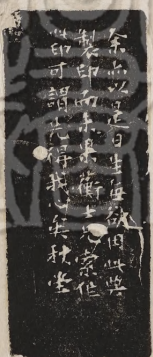 余亦以是日生每欲因此與
製印而未果衡士兄索作
茲印可謂先得我心矣秋堂